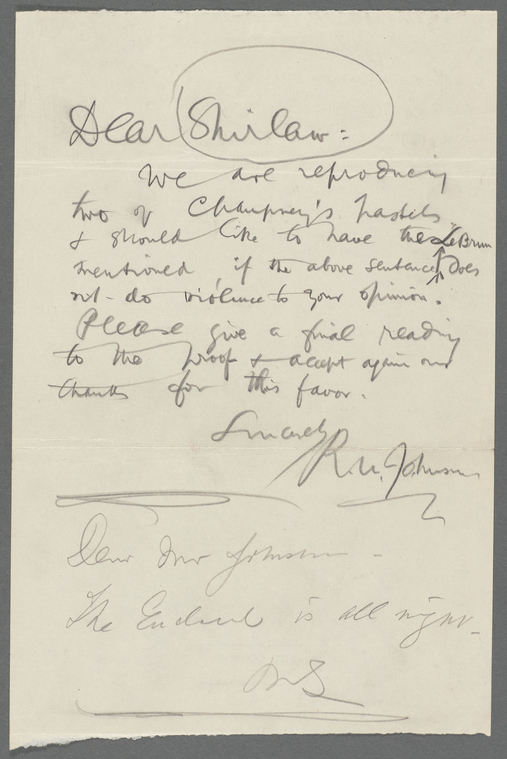 Dear Shirlaw:
We are reproducing
two of Champney's pastels
& should like to have the LeBrun
mentioned, if the above sentence does
not do violence to your opinion.
Please give a final reading
to the proof & accept again our
thanks for this favor.
Sincerely
R. U. Johnson
Dear Mr Johnson -
The Enclosed is all right -